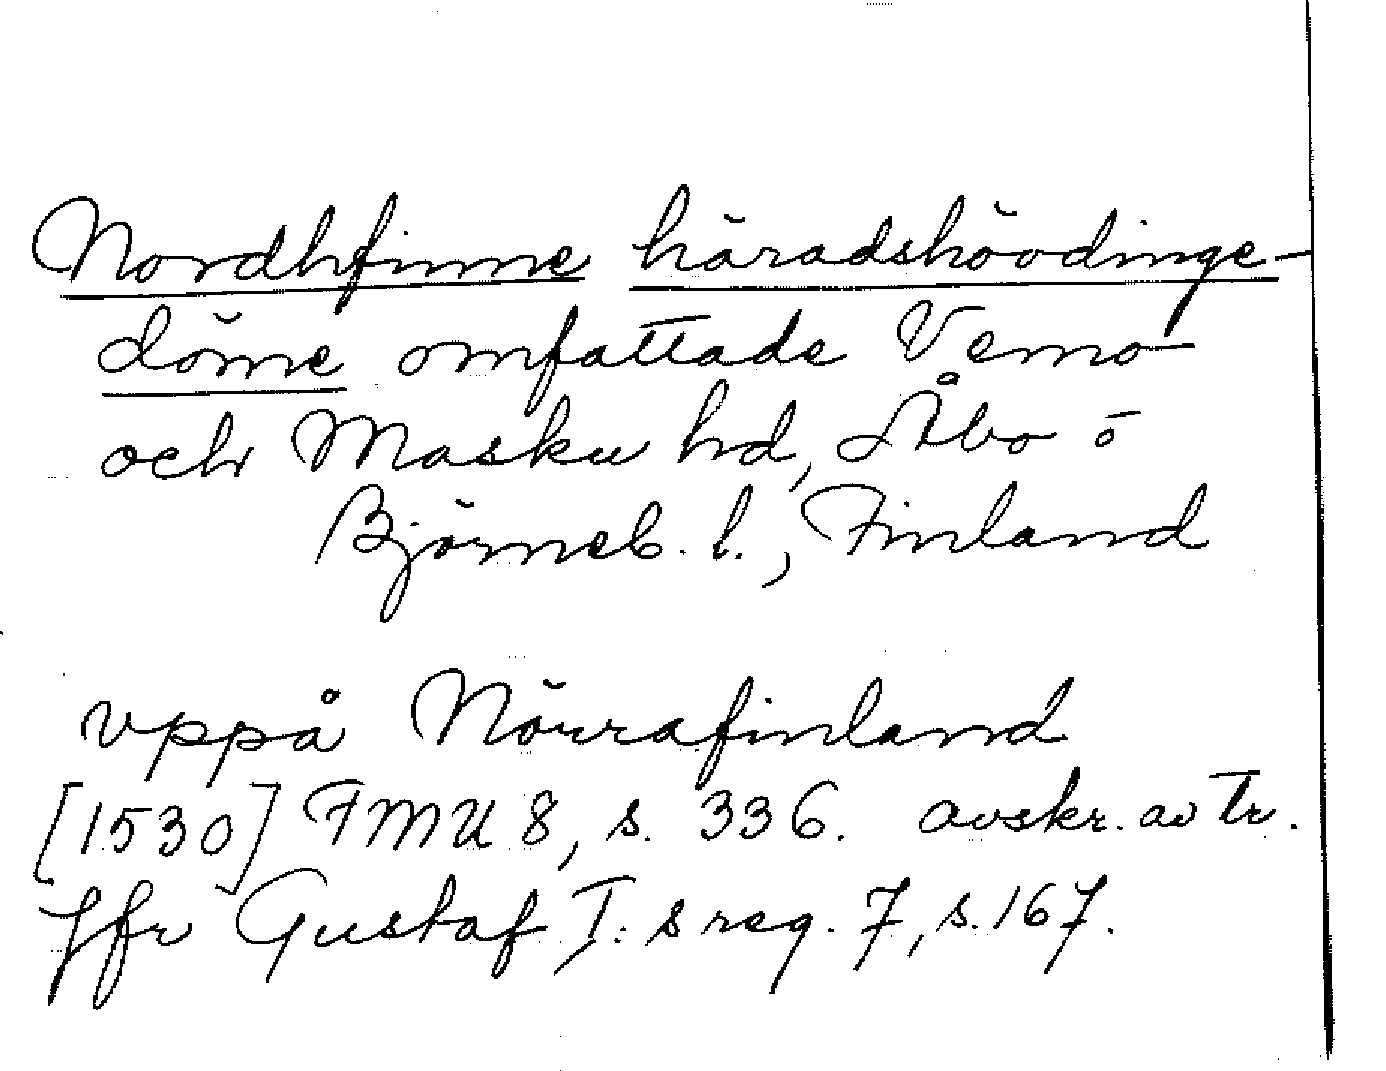 Nordhfinne häradshöödinge-
döme omfattade Vemo-
och Masku hd, Åbo o
Björneb. l., Finland
vppå Nörrafinland
[1530] FMU 8, s. 336. avskr. av tr.
Jfr Gustaf I:s reg. 7, s. 167.